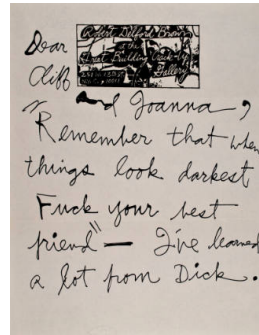 Dear
Robert Delford Brown
at the
Great Building Crack-Up
Gallery
Cliff
and Joanna,
"Remember that when
things look darkest
Fuck your best
friend" — I've learned
a lot from Dick.